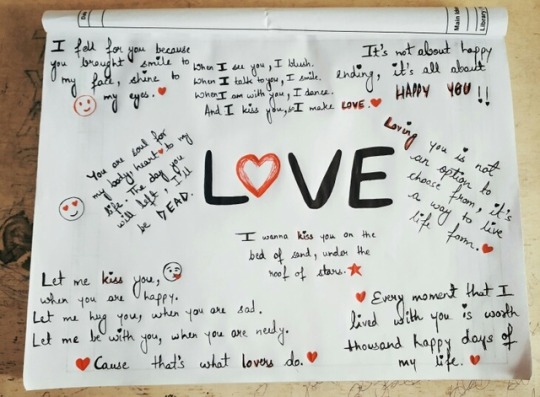 Main M
Library
I fell for you because
you brought smile to
my face, shine to
my eyes.
When I see you, I blush.
When I talk to you, I smile.
When I am with you, I dance.
And I kiss you, so I make LOVE.
It's not about happy
ending, it's all about
HAPPY YOU !!
You are soul for
my body, heart to my
life. The day you
will left, I'll
be DEAD.
LOVE
Loving you is not
an option to
choose from, it's
a way to live
life form.
I wanna kiss you on the
bed of sand, under the
roof of stars.
Let me kiss you,
when you are happy.
Let me hug you, when you are sad.
Let me be with you, when you are needy.
Cause that's what lovers do.
Every moment that I
lived with you is worth
thousand happy days of
my life.